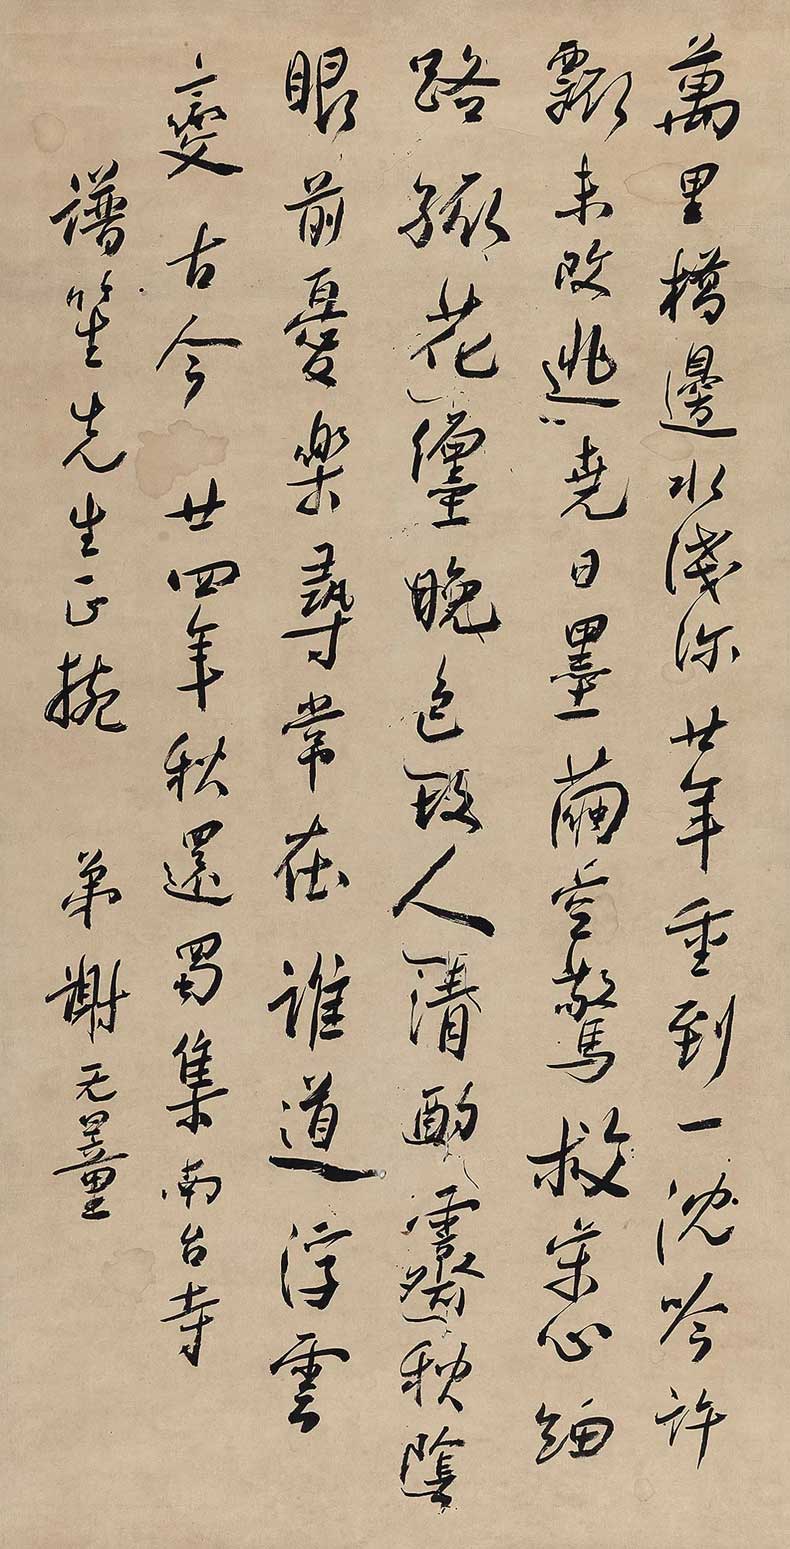 萬里橋邊水淺深廿年重到一沈吟許
瓢未改逃堯日墨繭空驚救宋心細
路孤花晚色故人清酌秋陰
眼前憂樂尋常在誰道浮雲
變古今 廿四年秋還蜀集南台寺
譜笙先生正捥 弟謝无量